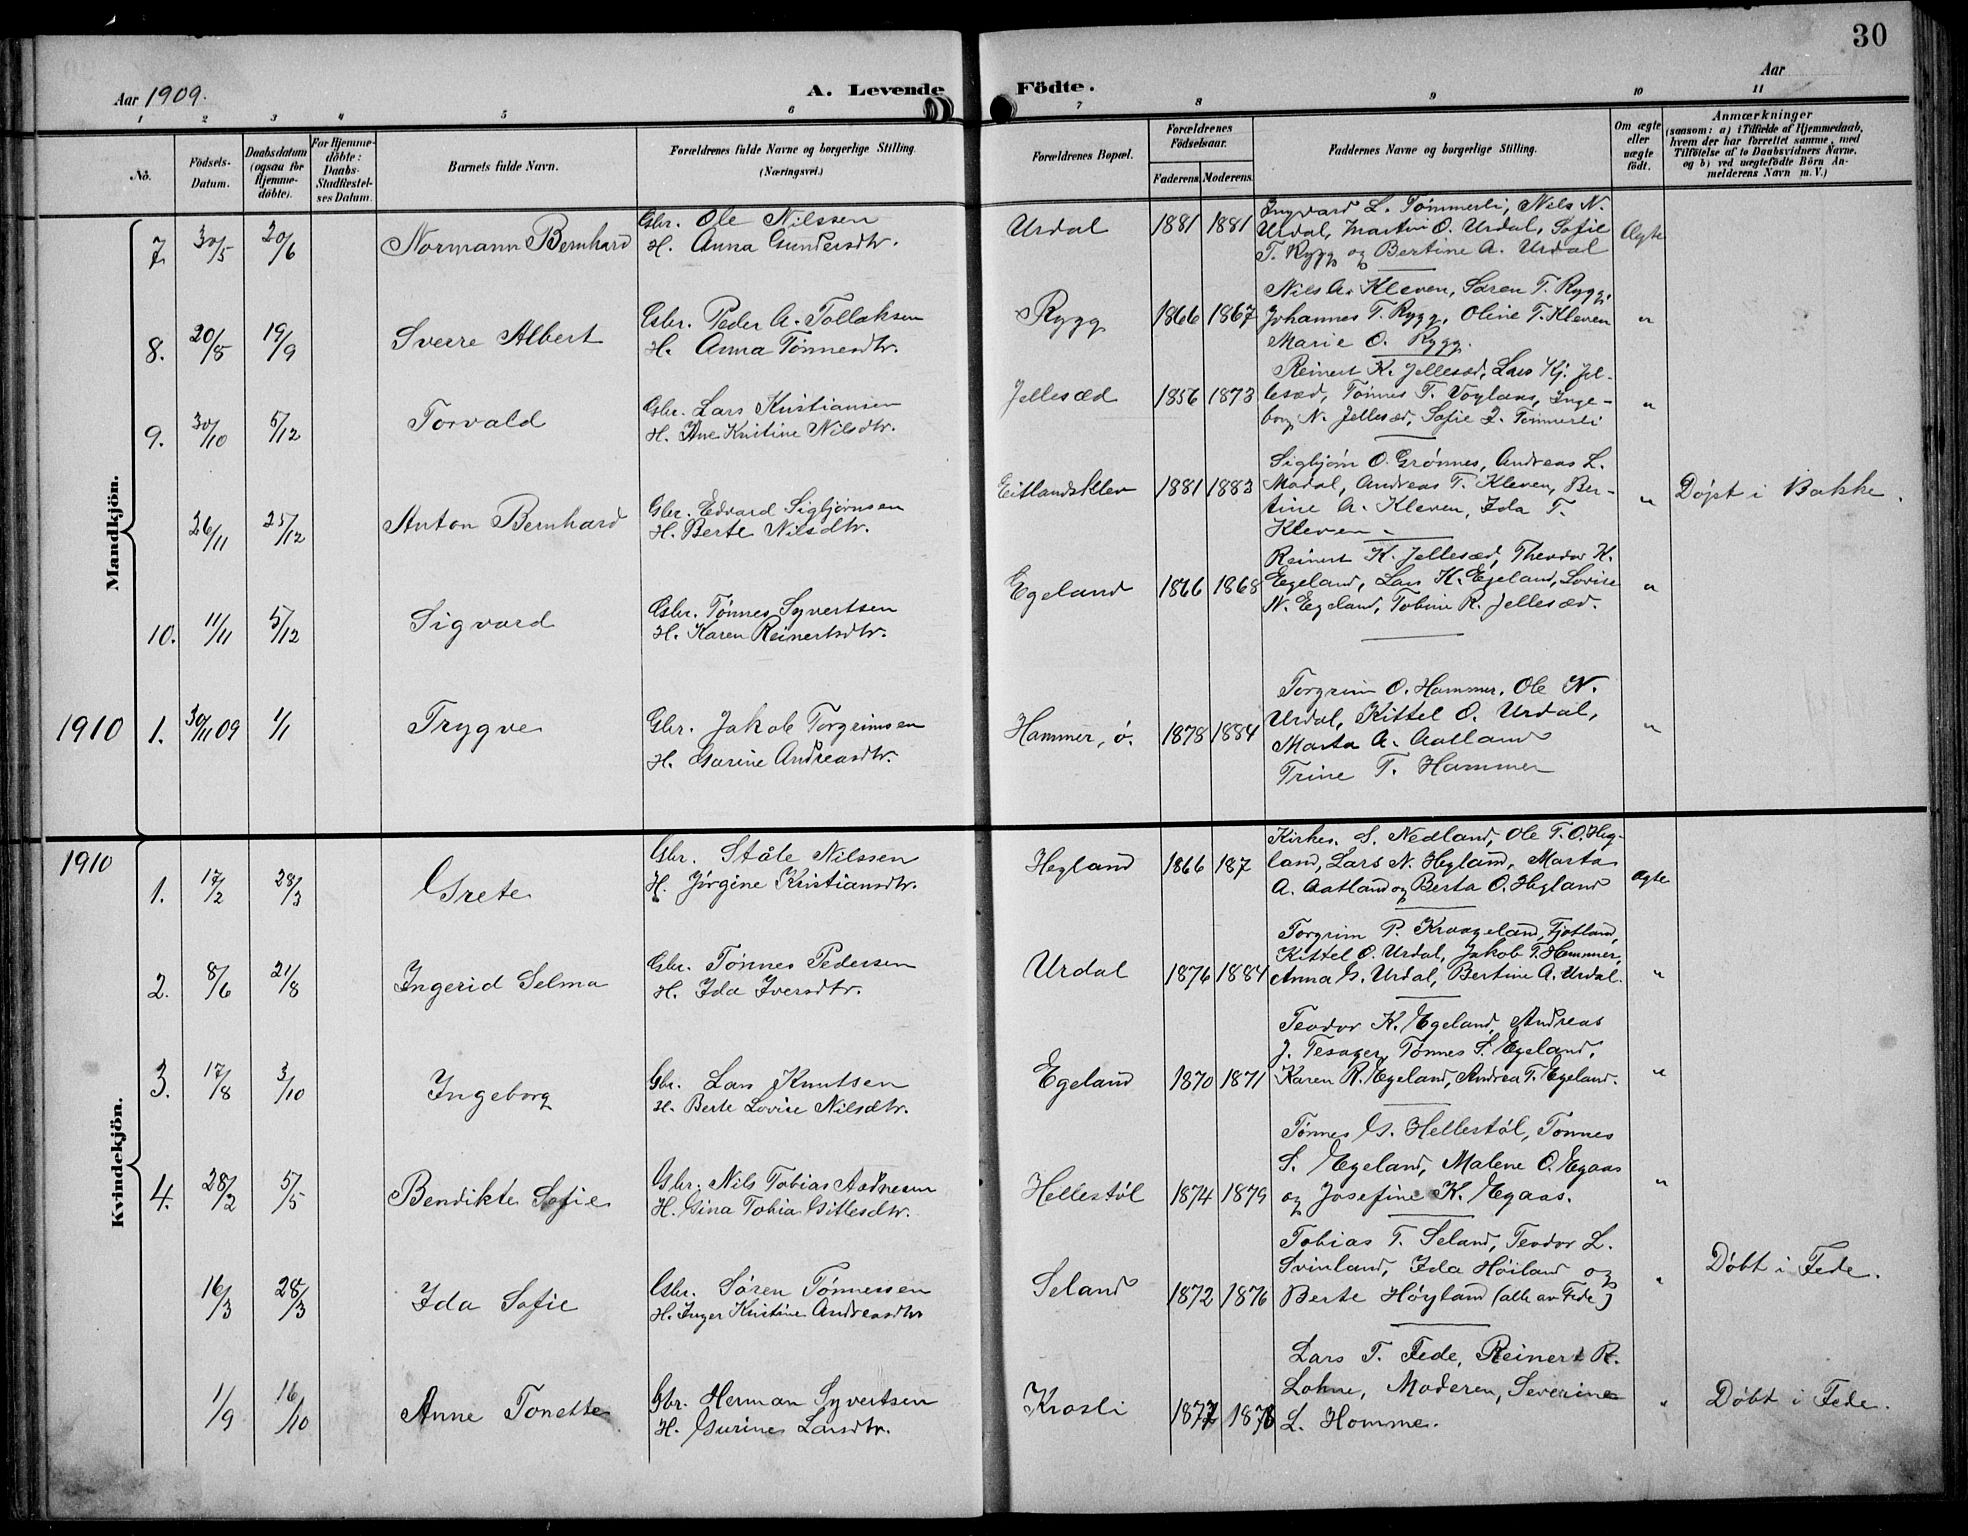 30
Aar 1909.
A. Levende Födte.
Aar
1 2 3 4 5 6 7 8 9 10 11
No.
Födsels-Datum.
Daabsdatum (ogsaa for Hjemme-döbte).
For Hjemme-döbte: Daabs-Stadfæstel-ses Datum.
Barnets fulde Navn.
Forældrenes fulde Navne og borgerlige Stilling. (Næringsvei.)
Forældrenes Bopæl.
Forældrenes Födselsaar.
Faderens. Moderens.
Faddernes Navne og borgerlige Stilling.
Om ægte eller uægte födt.
Anmærkninger
(saasom: a) i Tilfælde af Hjemmedaab, hvem der har forrettet samme, med Tilföielse af to Daabsvidners Navne, og b) ved uægtefödte Börn An-melderens Navn m. V.)
Mandkjön.
7. 30/5 20/6 Normann Bernhard
Gbr. Ole Nilssen
H. Anna Gundersdtr.
Urdal 1881 1881
Ingvard L. Tömmerli, Nils N.
Urdal, Martin O. Urdal, Sofie
T. Rygg og Bertine A. Urdal
Ægte
8. 20/8 19/9 Sverre Albert
Gbr. Peder A. Tollaksen
H. Anna Tønnesdtr.
Rygg 1866 1867
Nils A. Kleven, Søren T. Rygg,
Johannes T. Rygg, Oline T. Kleven
Marie O. Rygg.
"
9. 30/10 5/12 Torvald
Gbr. Lars Kristiansen
H. Ane Kristine Nilsdtr.
Jellesæd 1856 1873
Reinert K. Jellesæd, Lars Kj. Jel-
lesæd, Tønnes T. Voylaas, Inge-
borg N. Jellesæd, Sofie L. Tömmerli
"
26/11 25/12 Anton Bernhard
Gbr. Edvard Sigbjørnsen
H. Berte Nilsdtr.
Eitlandsklev 1881 1883
Sigbjørn O. Grønnes, Andreas L.
Modal, Andreas T. Kleven, Ber-
tine A. Kleven, Ida T.
Kleven.
" Døpt i Bakke.
10. 11/11 5/12 Sigvard
Gbr. Tønnes Syvertsen
H. Karen Reinertsdtr.
Egeland 1866 1868
Reinert K. Jellesæd, Theodor K.
Egeland, Lars K. Egeland, Lovise
N. Egeland, Tobine R. Jellesæd.
"
1910 1. 30/11 09 1/1 Trygve
Gbr. Jakob Torgrimsen
H. Garine Andreasdtr.
Hammer, ø. 1878 1884
Torgrim O. Hammer, Ole N.
Urdal, Kittel O. Urdal,
Marta A. Aatland
Trine T. Hammer
"
Kvindekjön.
1910
1. 17/2 28/3 Grete
Gbr. Ståle Nilssen
H. Jørgine Kristiansdtr.
Hegland 1866 187
Kirkes. S. Nedland, Ole T. O. Heg-
land, Lars N. Hegland, Marta
A. Aatland og Berta O. Hegland
Ægte
2. 8/6 21/8 Ingerid Selma
Gbr. Tønnes Pedersen
H. Ida Iversdtr.
Urdal 1876 1884
Torgrim P. Kraageland, Fjotland,
Kittel O. Urdal, Jakob T. Hammer,
Anna G. Urdal, Bertine A. Urdal.
"
3. 17/8 3/10 Ingeborg
Gbr. Lars Knutsen
H. Berte Lovise Nilsdtr.
Egeland 1870 1871
Teodor K. Egeland, Andreas
J. Tesager, Tønnes S. Egeland,
Karen R. Egeland, Andrea T. Egeland.
"
4. 28/2 5/5 Bendikte Sofie
Gbr. Nils Tobias Aadnesen
H. Gina Tobia Gitlesdtr.
Hellestøl 1874 1879
Tønnes G. Hellestøl, Tonnes
S. Egeland, Malene O. Egaas
og Josefine K. Egaas.
"
16/3 28/3 Ida Sofie
Gbr. Søren Tønnessen
H. Inger Kristine Andreasdtr
Seland 1872 1876
Tobias T. Seland, Teodor L.
Svinland, Ida Høiland og
Berte Høyland (alle av Fede)
" Døbt i Fede.
1/9 16/10 Anne Tonette
Gbr. Herman Syvertsen
H. Gurine Larsdtr.
Krosli 1877 1878
Lars T. Fede, Reinert R.
Lohne, Moderen, Severine
L. Homme.
" Døbt i Fede.